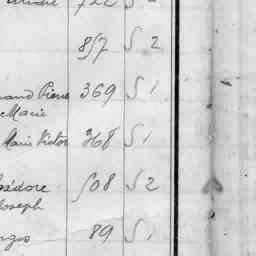 722 S 2
857 S 2
Pierre 369 S 1
Marie
Marie Victor 368 S 1
Isidore 508 S 2
Joseph
89 S 1